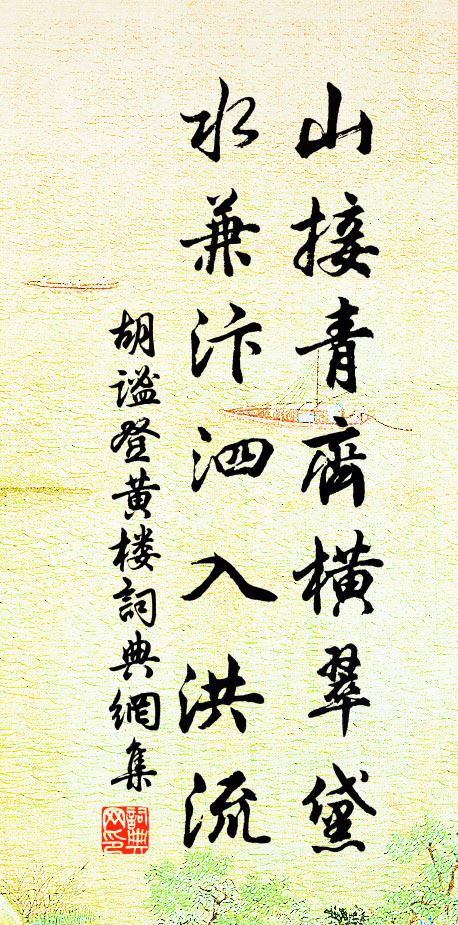 山接青齊橫翠黛
水兼汴泗入洪流
胡谧登黄楼詞典網集
詞典网印